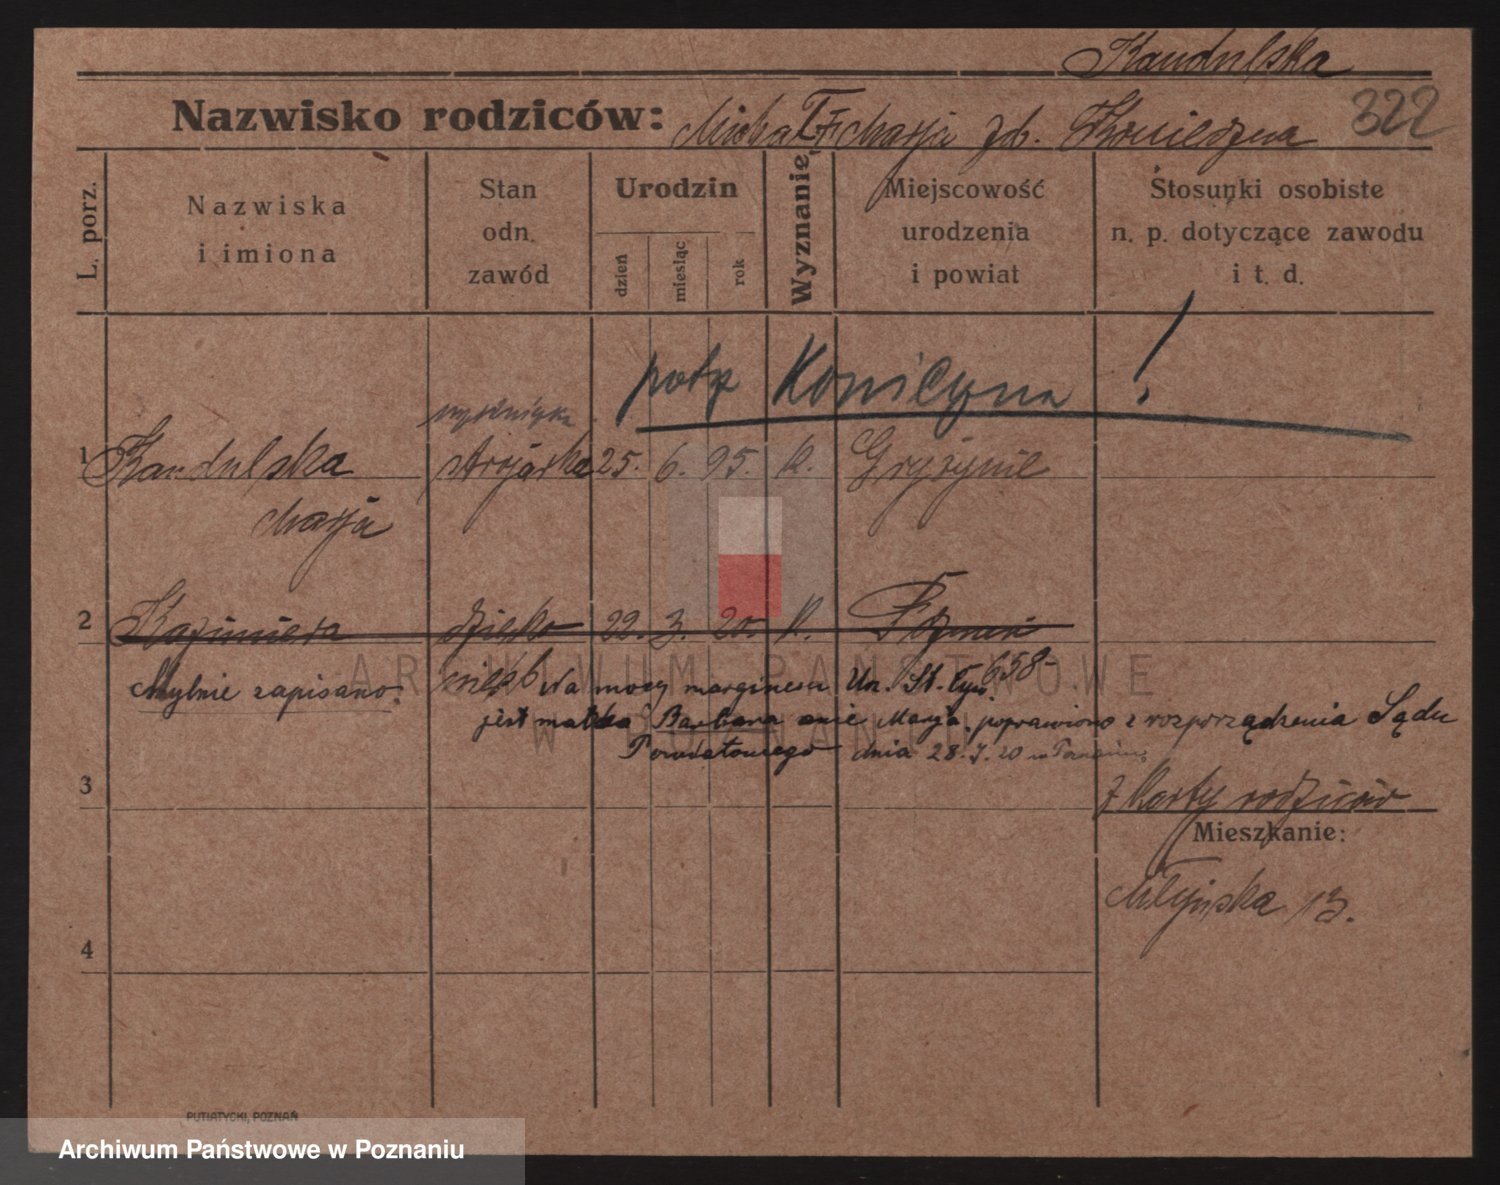 Kandulska
Nazwisko rodziców: Michał i Marja zd. 322
L. porz.
Nazwiska
i imiona
Stan
odn.
zawód
Urodzin
dzień
miesiąc
rok
Wyznanie
Miejscowość
urodzenia
i powiat
Stosunki osobiste
n. p. dotyczące zawodu
i t. d.
potp !
1 Kandulska 25. 6. 95. K. Gryżynie
Marja
2 Kazimiera dziecko 22. 3. 20. K. Poznań
Mylnie zapisano: Na mocy marginesu Urz. St. Cyw. 658
jest matka Barbara a nie Marja. poprawiono z rozporządzenia Sądu
Powiatowego dnia 28. 7. 20 w Poznaniu
3
Z karty rodziców
Mieszkanie:
Młyńska 13.
4
ARCHIWUM PAŃSTWOWE
W POZNANIU
PUTIATYCKI, POZNAŃ
Archiwum Państwowe w Poznaniu